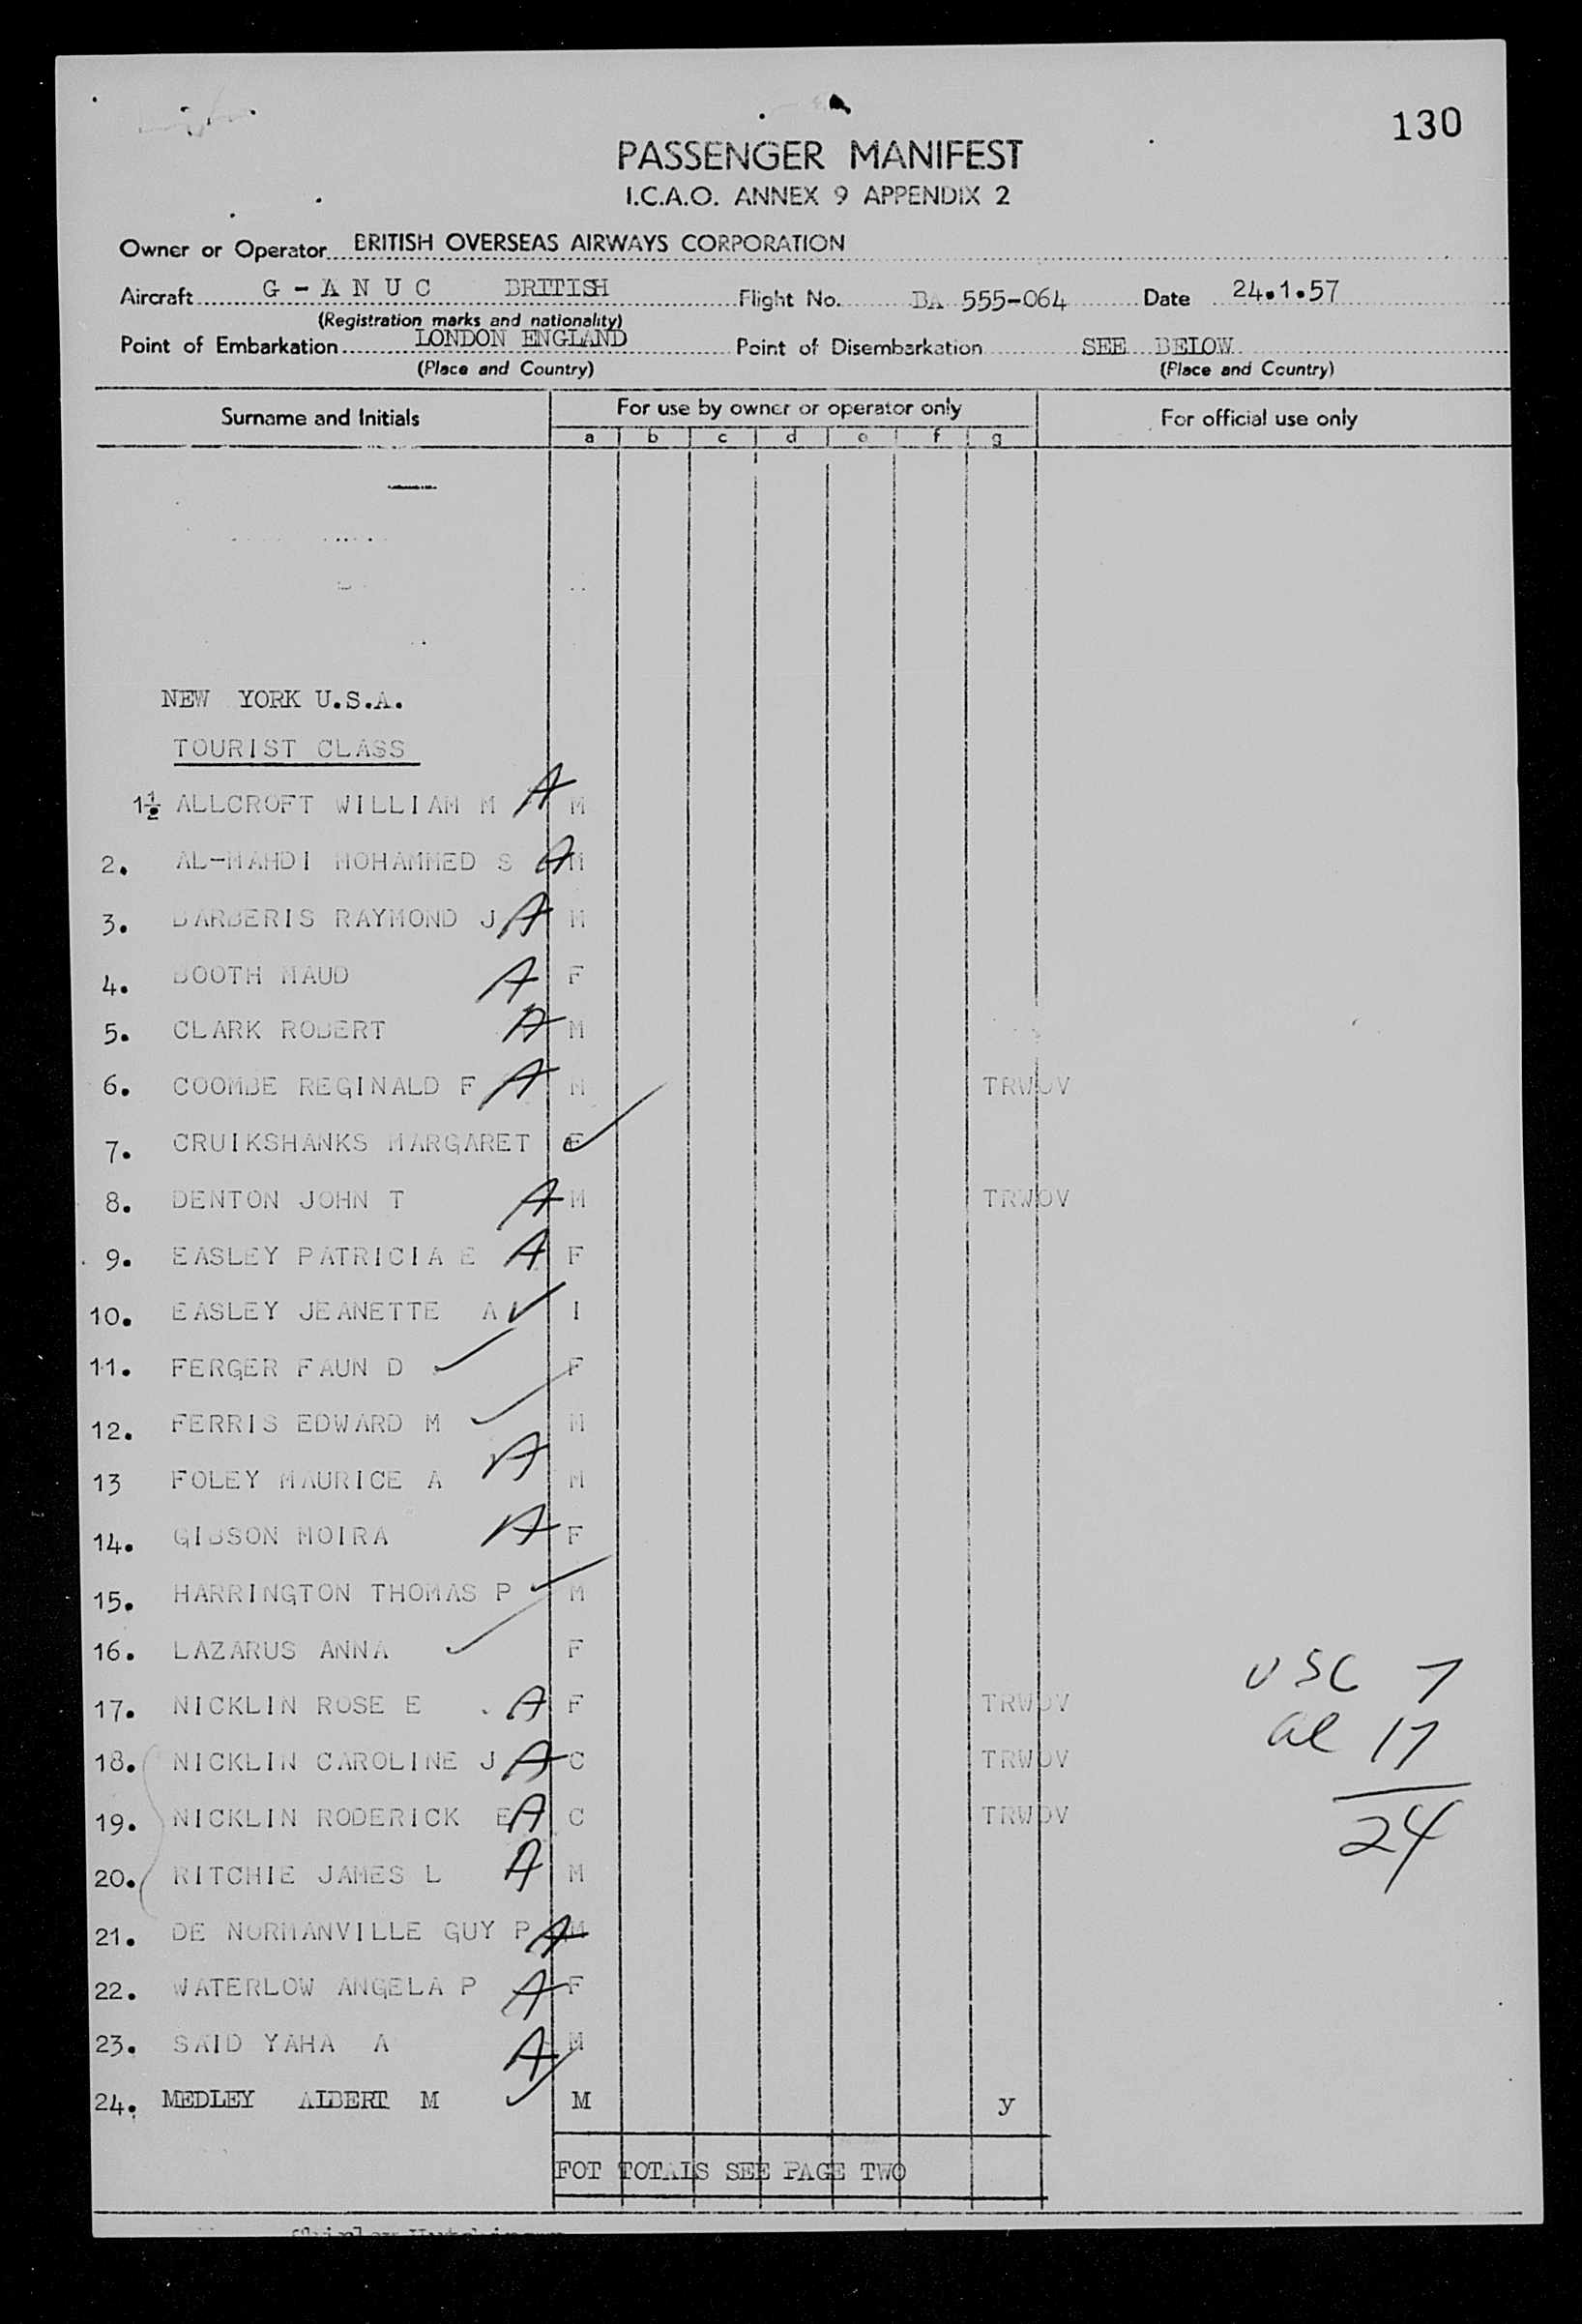 130
PASSENGER MANIFEST
I.C.A.O. ANNEX 9 APPENDIX 2
Owner or Operator BRITISH OVERSEAS AIRWAYS CORPORATION
Aircraft G - A N U C BRITISH Flight No. BA 555-064 Date 24.1.57
(Registration marks and nationality)
Point of Embarkation LONDON ENGLAND Point of Disembarkation SEE BELOW
(Place and Country) (Place and Country)
Surname and Initials For use by owner or operator only For official use only
a b c d e f g
NEW YORK U.S.A.
TOURIST CLASS
1½ ALLCROFT WILLIAM M A M
2. AL-MAHDI MOHAMMED S A M
3. BARBERIS RAYMOND J A M
4. BOOTH MAUD A F
5. CLARK ROBERT A M
6. COOMBE REGINALD F A M TRWOV
7. CRUIKSHANKS MARGARET F
8. DENTON JOHN T A M TRWOV
9. EASLEY PATRICIA E A F
10. EASLEY JEANETTE A I
11. FERGER FAUN D F
12. FERRIS EDWARD M M
13 FOLEY MAURICE A A M
14. GIBSON MOIRA A F
15. HARRINGTON THOMAS P M
16. LAZARUS ANNA F
17. NICKLIN ROSE E A F TRWOV
18. NICKLIN CAROLINE J A C TRWOV
19. NICKLIN RODERICK E A C TRWOV
20. RITCHIE JAMES L A M
21. DE NORMANVILLE GUY P A M
22. WATERLOW ANGELA P A F
23. SAID YAHA A A M
24. MEDLEY ALBERT M M y
USC 7
al 17
24
FOT TOTALS SEE PAGE TWO